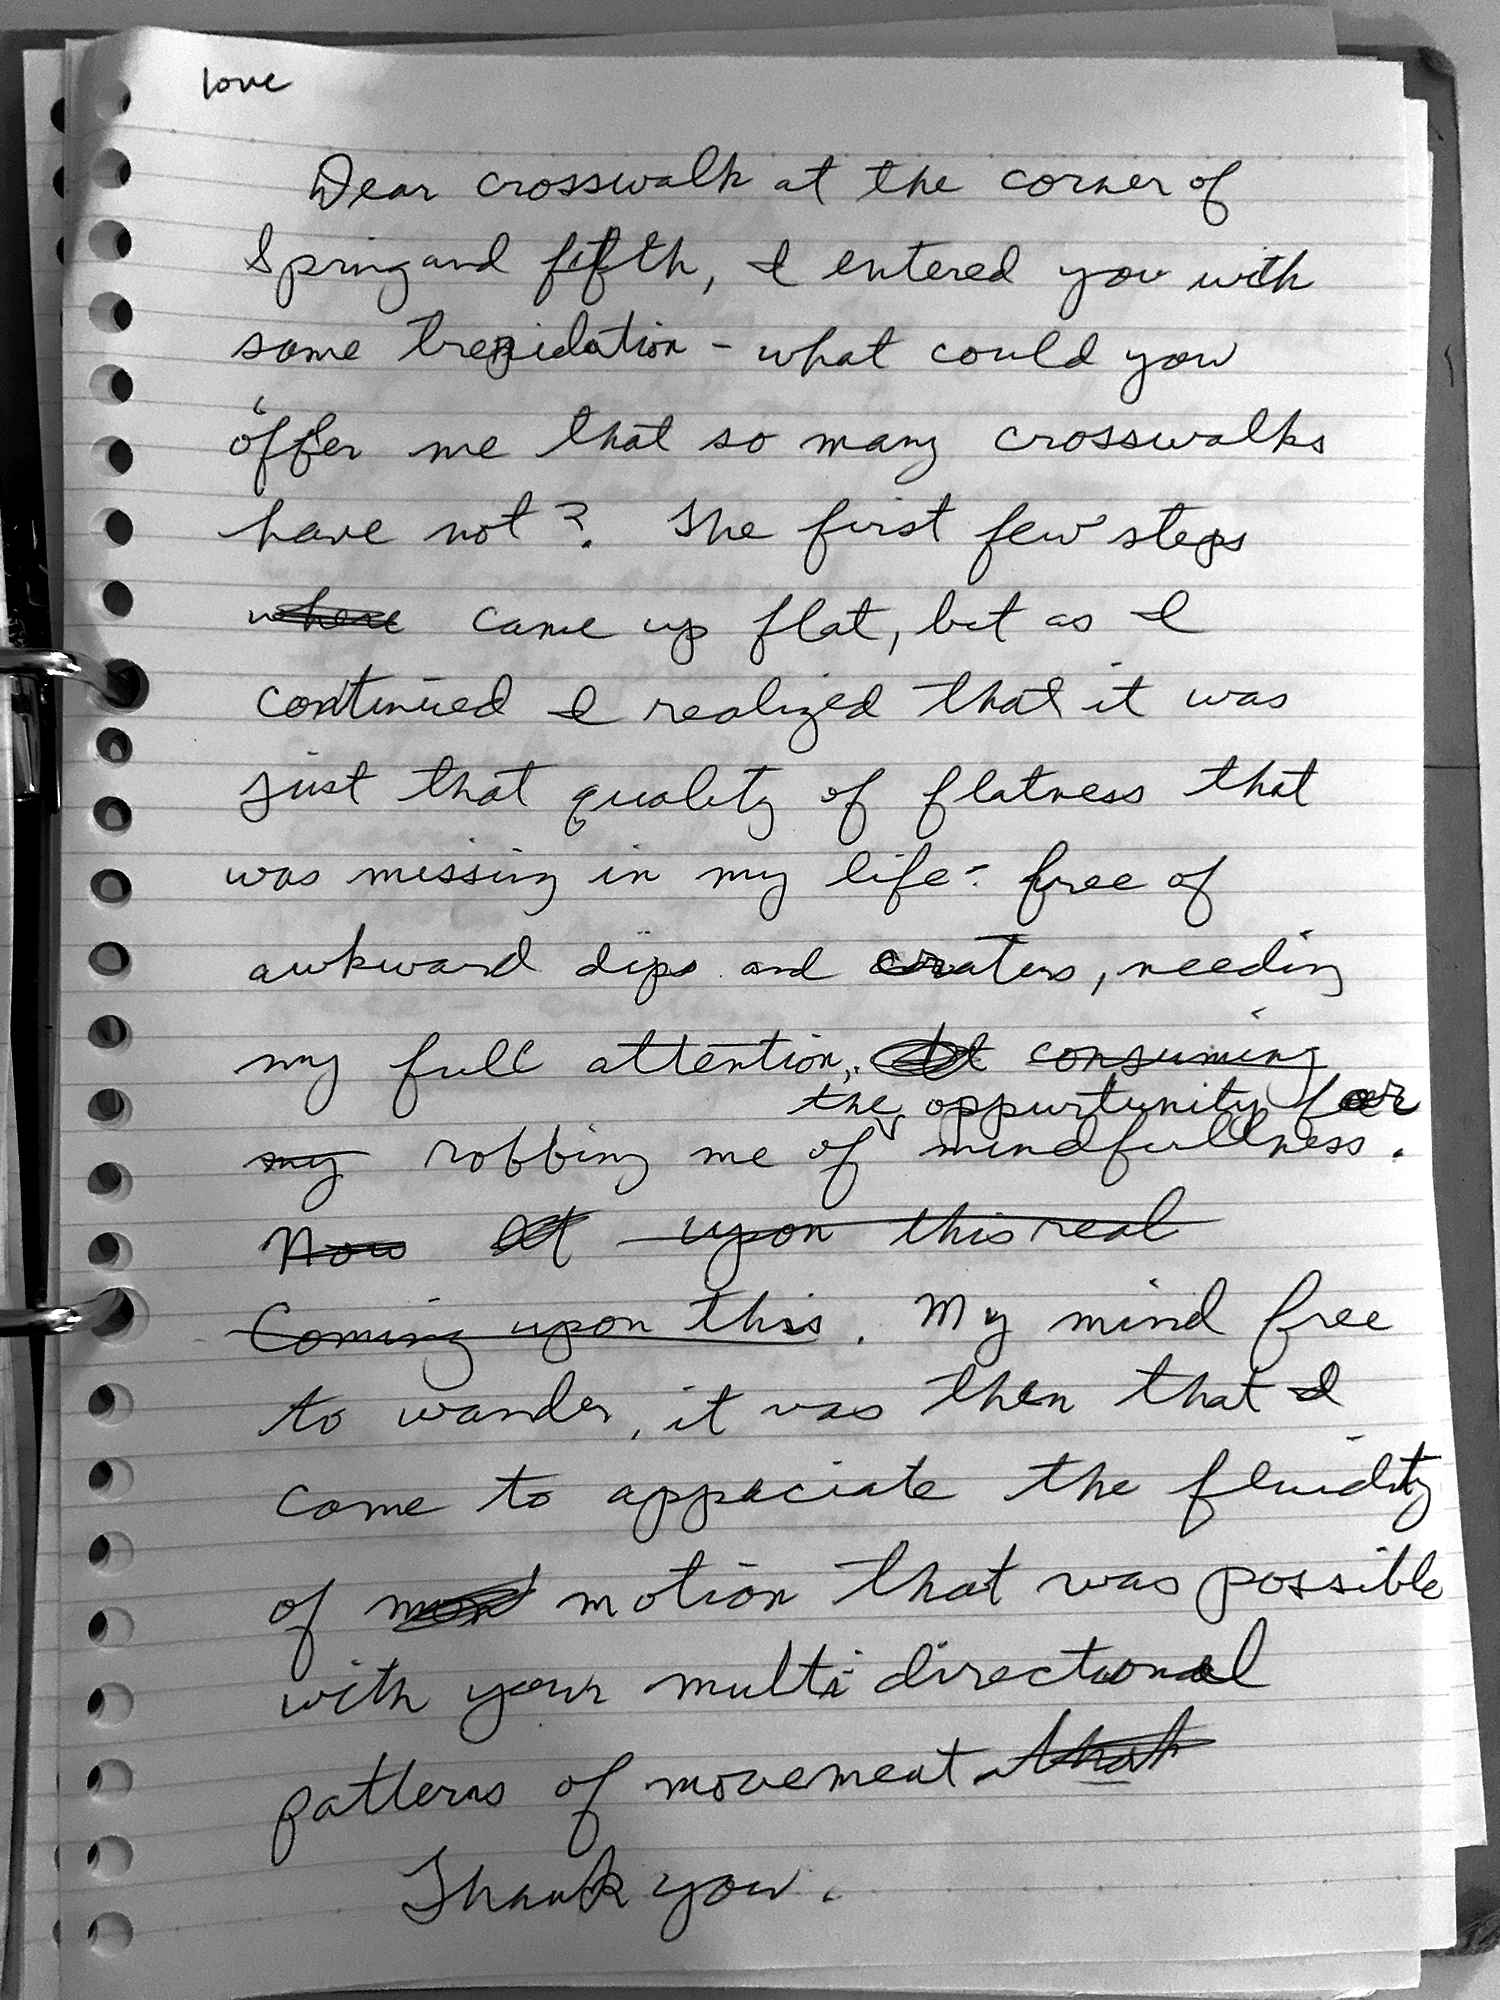 love
Dear crosswalk at the corner of
Spring and fifth, I entered you with
some trepidation - what could you
offer me that so many crosswalks
have not? The first few steps
where came up flat, but as I
continued I realized that it was
just that quality of flatness that
was missing in my life - free of
awkward dips and craters, needing
my full attention, consuming
the opportunity for
my robbing me of mindfullness.
Now upon this real
Coming upon this. My mind free
to wander, it was then that I
come to appreciate the fluidity
of motion that was possible
with your multi directional
patterns of movement. that
Thank you.